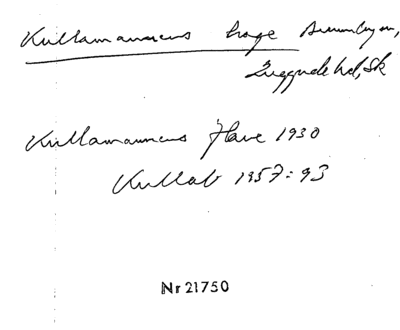 Kullamannens hage Brunnbyn,
Luggude hd, Sk
Kullamannens Have 1930
Kullab 1957: 93
Nr 21750